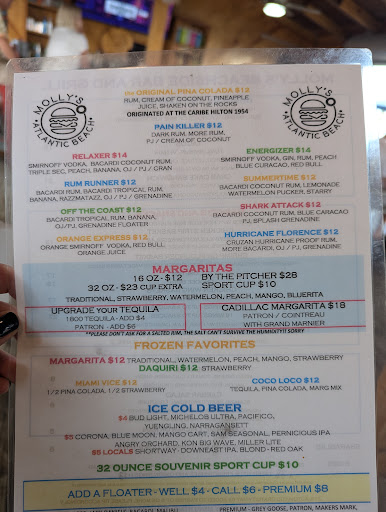 the ORIGINAL PINA COLADA $12
RUM, CREAM OF COCONUT, PINEAPPLE
JUICE, SHAKEN ON THE ROCKS
ORIGINATED AT THE CARIBE HILTON 1954
MOLLY'S
ATLANTIC BEACH
MOLLY'S
ATLANTIC BEACH
PAIN KILLER $12
DARK RUM, MORE RUM,
PJ / CREAM OF COCONUT
RELAXER $14
SMIRNOFF VODKA, BACARDI COCONUT RUM,
TRIPLE SEC, PEACH, BANANA, OJ / PJ / GRAN
ENERGIZER $14
SMIRNOFF VODKA, GIN, RUM, PEACH
BLUE CURACAO, RED BULL
RUM RUNNER $12
BACARDI RUM, BACARDI TROPICAL RUM,
BANANA, RAZZMATAZZ, OJ / PJ / GRENADINE
SUMMERTIME $12
BACARDI COCONUT RUM, LEMONADE
WATERMELON PUCKER, STARRY
OFF THE COAST $12
BACARDI TROPICAL RUM, BANANA,
OJ/PJ, GRENADINE FLOATER
SHARK ATTACK $12
BACARDI COCONUT RUM, BLUE CURACAO
PJ, SPLASH GRENADINE
ORANGE EXPRESS $12
ORANGE SMIRNOFF VODKA, RED BULL
ORANGE JUICE
HURRICANE FLORENCE $12
CRUZAN HURRICANE PROOF RUM,
MORE BACARDI, OJ / PJ, GRENADINE
MARGARITAS
16 OZ - $12 BY THE PITCHER $28
32 OZ - $23 CUP EXTRA SPORT CUP $10
TRADITIONAL, STRAWBERRY, WATERMELON, PEACH, MANGO, BLUERITA
UPGRADE YOUR TEQUILA
1800 TEQUILA - ADD $4
PATRON - ADD $6
CADILLAC MARGARITA $18
PATRON / COINTREAU
WITH GRAND MARNIER
**PLEASE DON'T ASK FOR A SALTED RIM, THE SALT CAN'T SURVIVE THE HUMIDITY!!! SORRY
FROZEN FAVORITES
MARGARITA $12 TRADITIONAL, WATERMELON, PEACH, MANGO, STRAWBERRY
DAQUIRI $12 STRAWBERRY
MIAMI VICE $12
1/2 PINA COLADA, 1/2 STRAWBERRY
COCO LOCO $12
TEQUILA, PINA COLADA, MARG MIX
ICE COLD BEER
$4 BUD LIGHT, MICHELOB ULTRA, PACIFICO,
YUENGLING, NARRAGANSETT
$5 CORONA, BLUE MOON, MANGO CART, SAM SEASONAL, PERNICIOUS IPA
ANGRY ORCHARD, KON BIG WAVE, MILLER LITE
$5 LOCALS SHORTWAY - DOWNEAST IPA, BLOND - RED OAK
32 OUNCE SOUVENIR SPORT CUP $10
ADD A FLOATER - WELL $4 - CALL $6 - PREMIUM $8
PREMIUM - GREY GOOSE, PATRON, MAKERS MARK,